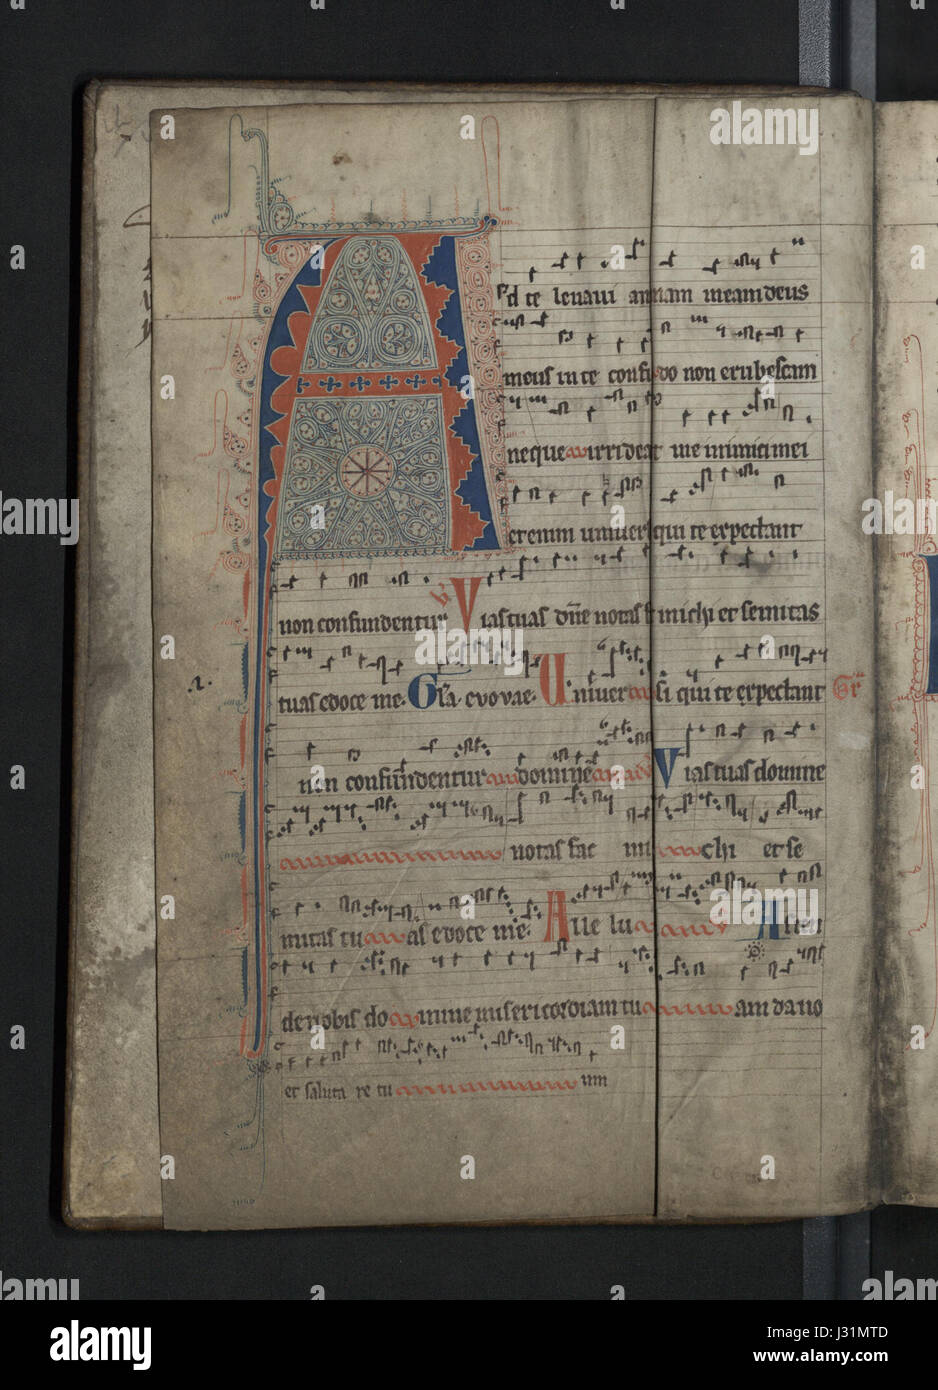 Ad te levavi animam meam deus
meus in te confido non erubescam
neque irrideant me inimici mei
etenim universi qui te expectant
non confundentur V Vias tuas dne notas f michi et semitas
tuas edoce me. Gla. evovae. Universi qui te expectant Gr
non confundentur domine Vias tuas domine
notas fac mi chi et se
mitas tu as edoce me. Alle lu a Osten
de nobis do mine misericordiam tu am da no
et saluta re tu um
.1.
alamy
Image ID: J31MTD
www.alamy.com